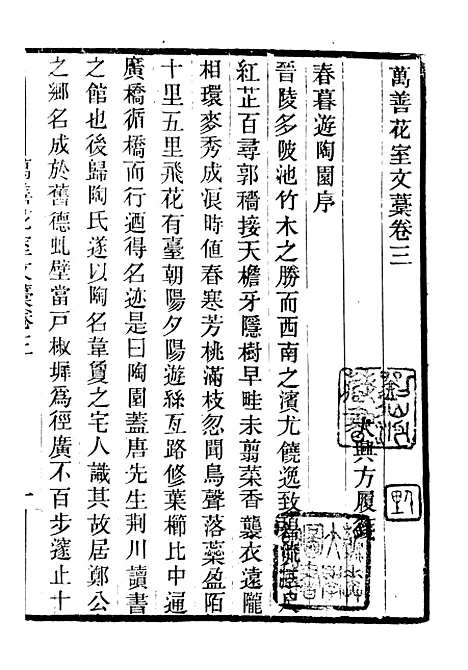 萬善花室文藁卷三
大興方履籛
春暮遊陶園序
晉陵多陂池竹木之勝而西南之濱尤饒逸致碧流
紅芷百尋郭穡接天檐牙隱樹早畦未翦菜香襲衣遠隴
相環麥秀成浪時値春寒芳桃滿枝忽聞鳥聲落蘂盈陌
十里五里飛花有臺朝陽夕陽遊絲亙路修葉櫛比中通
廣橋循橋而行迺得名迹是曰陶園蓋唐先生荊川讀書
之館也後歸陶氏遂以陶名韋夐之宅人識其故居鄭公
之鄉名成於舊德虬壁當戸椒墀爲徑廣不百步邃止十
萬善花室文藁卷三
一